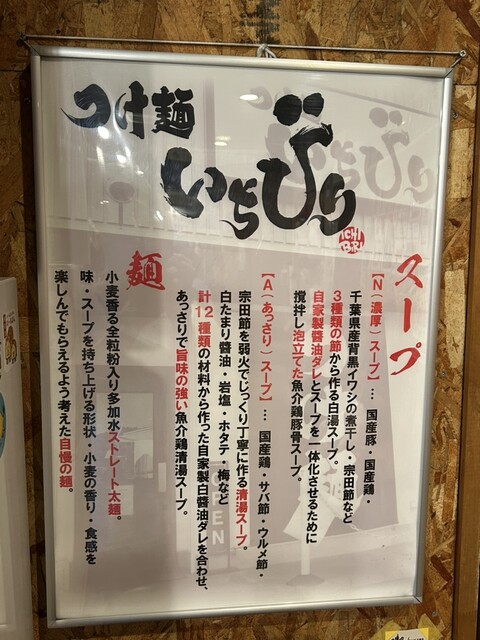 つけ麺
いちびり
ICHI
BiRi
スープ
【N（濃厚）スープ】… 国産豚・国産鶏・
千葉県産背黒イワシの煮干し・宗田節など
3種類の節から作る白湯スープ。
自家製醬油ダレとスープを一体化させるために
撹拌し泡立てた魚介鶏豚骨スープ。
【A（あっさり）スープ】… 国産鶏・サバ節・ウルメ節・
宗田節を弱火でじっくり丁寧に作る清湯スープ。
白たまり醬油・岩塩・ホタテ・梅など
計12種類の材料から作った自家製白醬油ダレを合わせ、
あっさりで旨味の強い魚介鶏清湯スープ。
麺
小麦香る全粒粉入り多加水ストレート太麺。
味・スープを持ち上げる形状・小麦の香り・食感を
楽しんでもらえるよう考えた自慢の麺。
OPEN